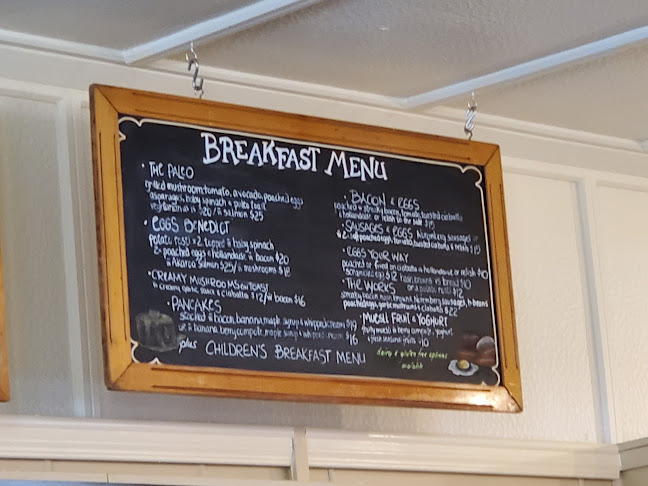 BREAKFAST MENU
• THE PALEO
grilled mushroom, tomato, avocado, poached eggs
asparagus, baby spinach & paleo toast
vegetarian $20 / salmon $25
• EGGS BENEDICT
potato rosti x2 topped baby spinach
2 poached eggs & hollandaise bacon $20
Akaroa Salmon $25 / mushrooms $18
• CREAMY MUSHROOMS ON TOAST
creamy garlic sauce & ciabatta $12 / bacon $16
• PANCAKES
stacked bacon, banana, maple syrup & whipped cream $19
or banana, berry compote, maple syrup & whipped cream $16
plus CHILDREN'S BREAKFAST MENU
• BACON & EGGS
poached streaky bacon, tomato, toasted ciabatta
& hollandaise or relish
• SAUSAGES & EGGS Nuremberg sausages
2 poached eggs, tomato, toasted ciabatta & relish $18
• EGGS YOUR WAY
poached or fried on ciabatta hollandaise or relish $10
scrambled egg $12 bread $10
• THE WORKS
streaky bacon, Nuremberg sausages, beans
poached eggs, garlic mushrooms & ciabatta $22
• MUESLI FRUIT & YOGHURT
fruity muesli berry compote, yoghurt
& fresh seasonal fruits $10
dairy & gluten free options
available